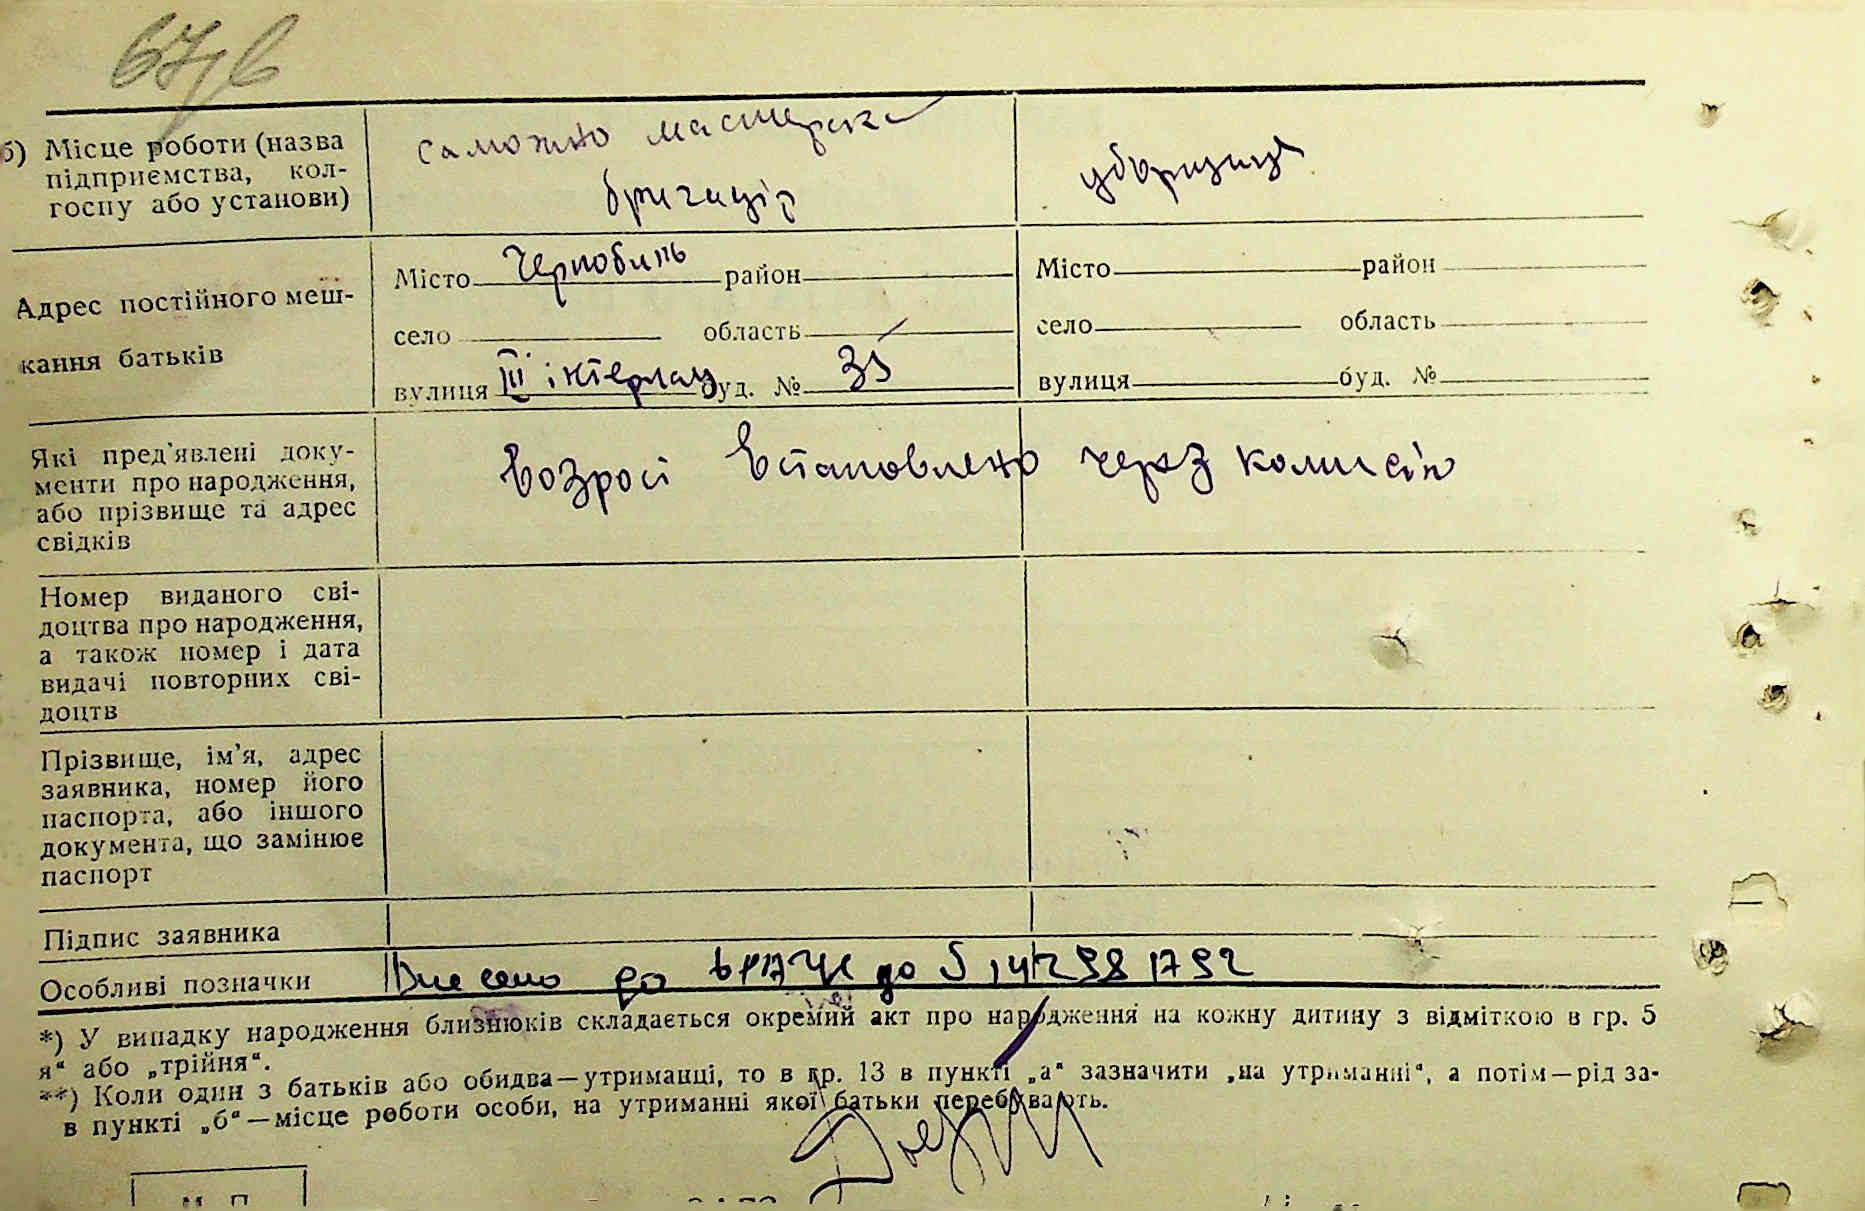 б) Місце роботи (назва
підприємства, кол-
госпу або установи)
бригадір
Адрес постійного меш-
кання батьків
Місто Чернобиль район
село область
вулиця III інтернац буд. № 35
Місто район
село область
вулиця буд. №
Які пред'явлені доку-
менти про народження,
або прізвище та адрес
свідків
возрост встановлено через комисію
Номер виданого сві-
доцтва про народження,
а також номер і дата
видачі повторних сві-
доцтв
Прізвище, ім'я, адрес
заявника, номер його
паспорта, або іншого
документа, що замінює
паспорт
Підпис заявника
Особливі позначки
Внесено до
*) У випадку народження близнюків складається окремий акт про народження на кожну дитину з відміткою в гр. 5
я“ або „трійня“.
**) Коли один з батьків або обидва—утриманці, то в гр. 13 в пункті „а“ зазначити „на утриманні“, а потім—рід за-
в пункті „б“—місце роботи особи, на утриманні якої батьки перебувають.
М. П.